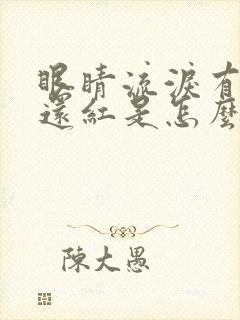 眼睛流淚有
還紅是怎麼
陳大愚